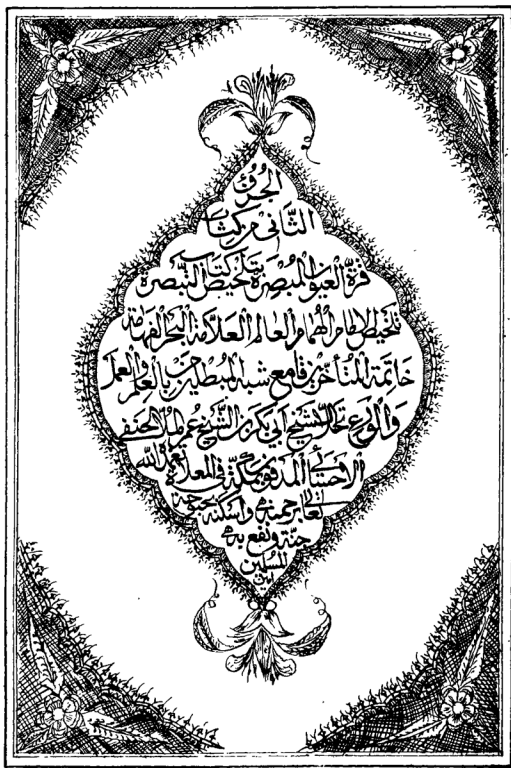 الجزؤ
الثاني من كتاب
قرة العيون المبصرة بتلخيص كتاب التبصرة
تلخيص الإمام الهمام والعالم العلامة البحر الفهامة
خاتمة المتأخرين قامع شبه المبطلين بالعلم والعمل
والورع محمد الشيخ أبي بكر بن الشيخ عمر الملا الحنفي
الأحسائي المدفون بمكة في المعلاة تغمده الله
تعالى برحمته وأسكنه بحبوحة
جنته ونفع به
المسلمين
آمين